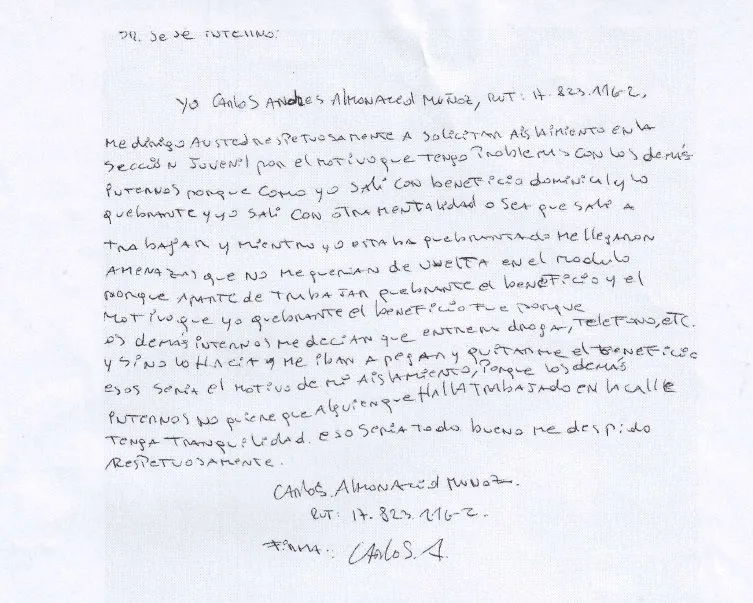 SR. JeFe iNTeRNo:
Yo Carlos Andres Almonacid Muñoz, RUT: 17.823.116-2,
Me dirigo A usted RespetuosAmente A solicitar Aislaimiento en la
sección Juvenil por el motivo que tengo Problemas con los demás
iNternos porque como yo salí con beneficio dominical y lo
quebrante y yo salí con otra mentalidad o sea que salí a
trabajar y mientra yo estaba quebrantado me llegaron
Amenazas que no me querian de vuelta en el modulo
porque Aparte de trabajar quebrante el beneficio y el
motivo que yo quebrante el beneficio fue porque
os demas internos me decian que entrera droga, telefono, etc.
y sino lo hacia y me iban a pegar y quitarme el beneficio
esos seria el motivo de mi Aislamiento, Porque los demás
iNternos no quiene que Alguien que Halla trabajado en la calle
tenga tranquilidad. eso seria todo bueno me despido
Respetuosamente.
Carlos. Almonacid Muñoz.
RUT: 17.823.116-2.
Firma: Carlos. A.